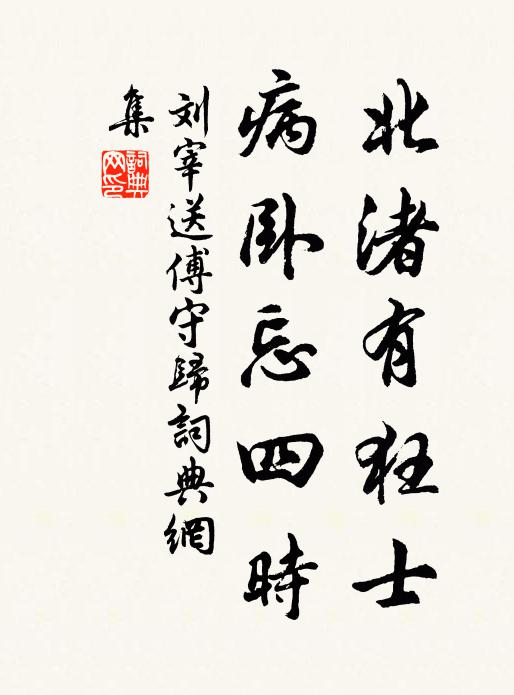 北渚有狂士
病卧忘四時
刘宰送傅守歸詞典網
集
詞典
网印